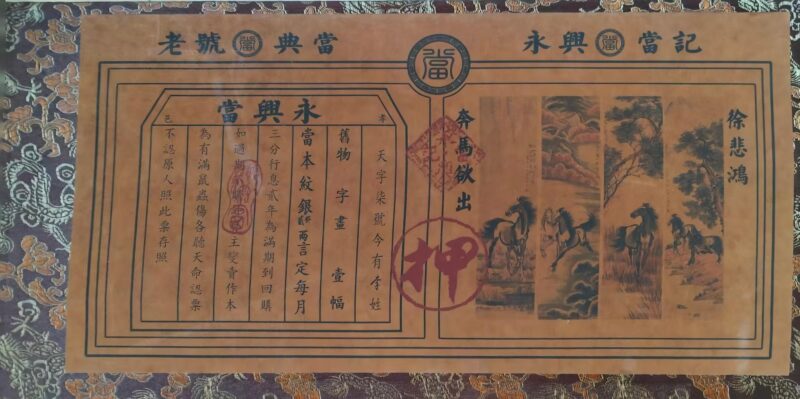 老號當典當
永興當當記
當
徐悲鴻
奔馬欽出
押
永興當
天字柒號今有李姓
舊物字畫壹幅
當本紋銀貳佰兩言定每月
三分行息貳年為滿期到回贖
如過期主变賣作本
為有滿鼠蟲傷各聽天命認票
不認原人照此票存照